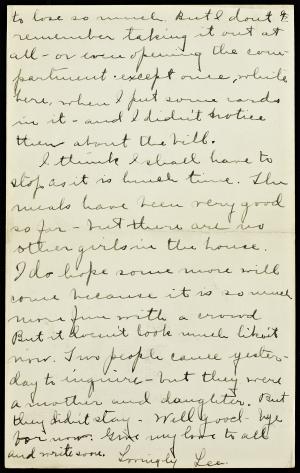 to lose so much. But I don't
remember taking it out at
all - or even opening the com-
partment - except once, while
here, when I put some cards
in it - and I didn't notice
then about the bill.
I think I shall have to
stop as it is lunch time. The
meals have been very good
so far - but there are no
other girls in the house.
I do hope some more will
come because it is so much
more fun with a crowd
But it doesn't look much like it
now. Two people came yester-
day to inquire - but they were
a mother and daughter. But
they didn't stay. Well good-bye
for now. Give my love to all
and write soon. Lovingly Lee.